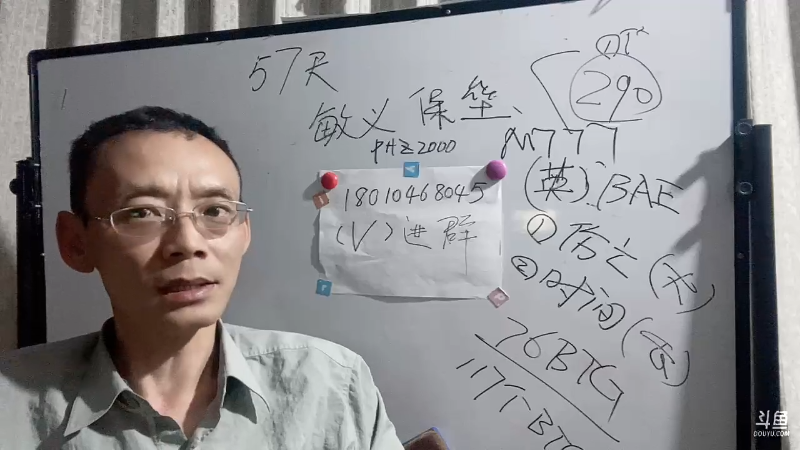 57天
敏义保垒、
PHZ2000
18010468045
(V)进群
290
M777
(英).BAE
①历之
②时间
76BTG
117个BTG
斗鱼
DOUYU.COM